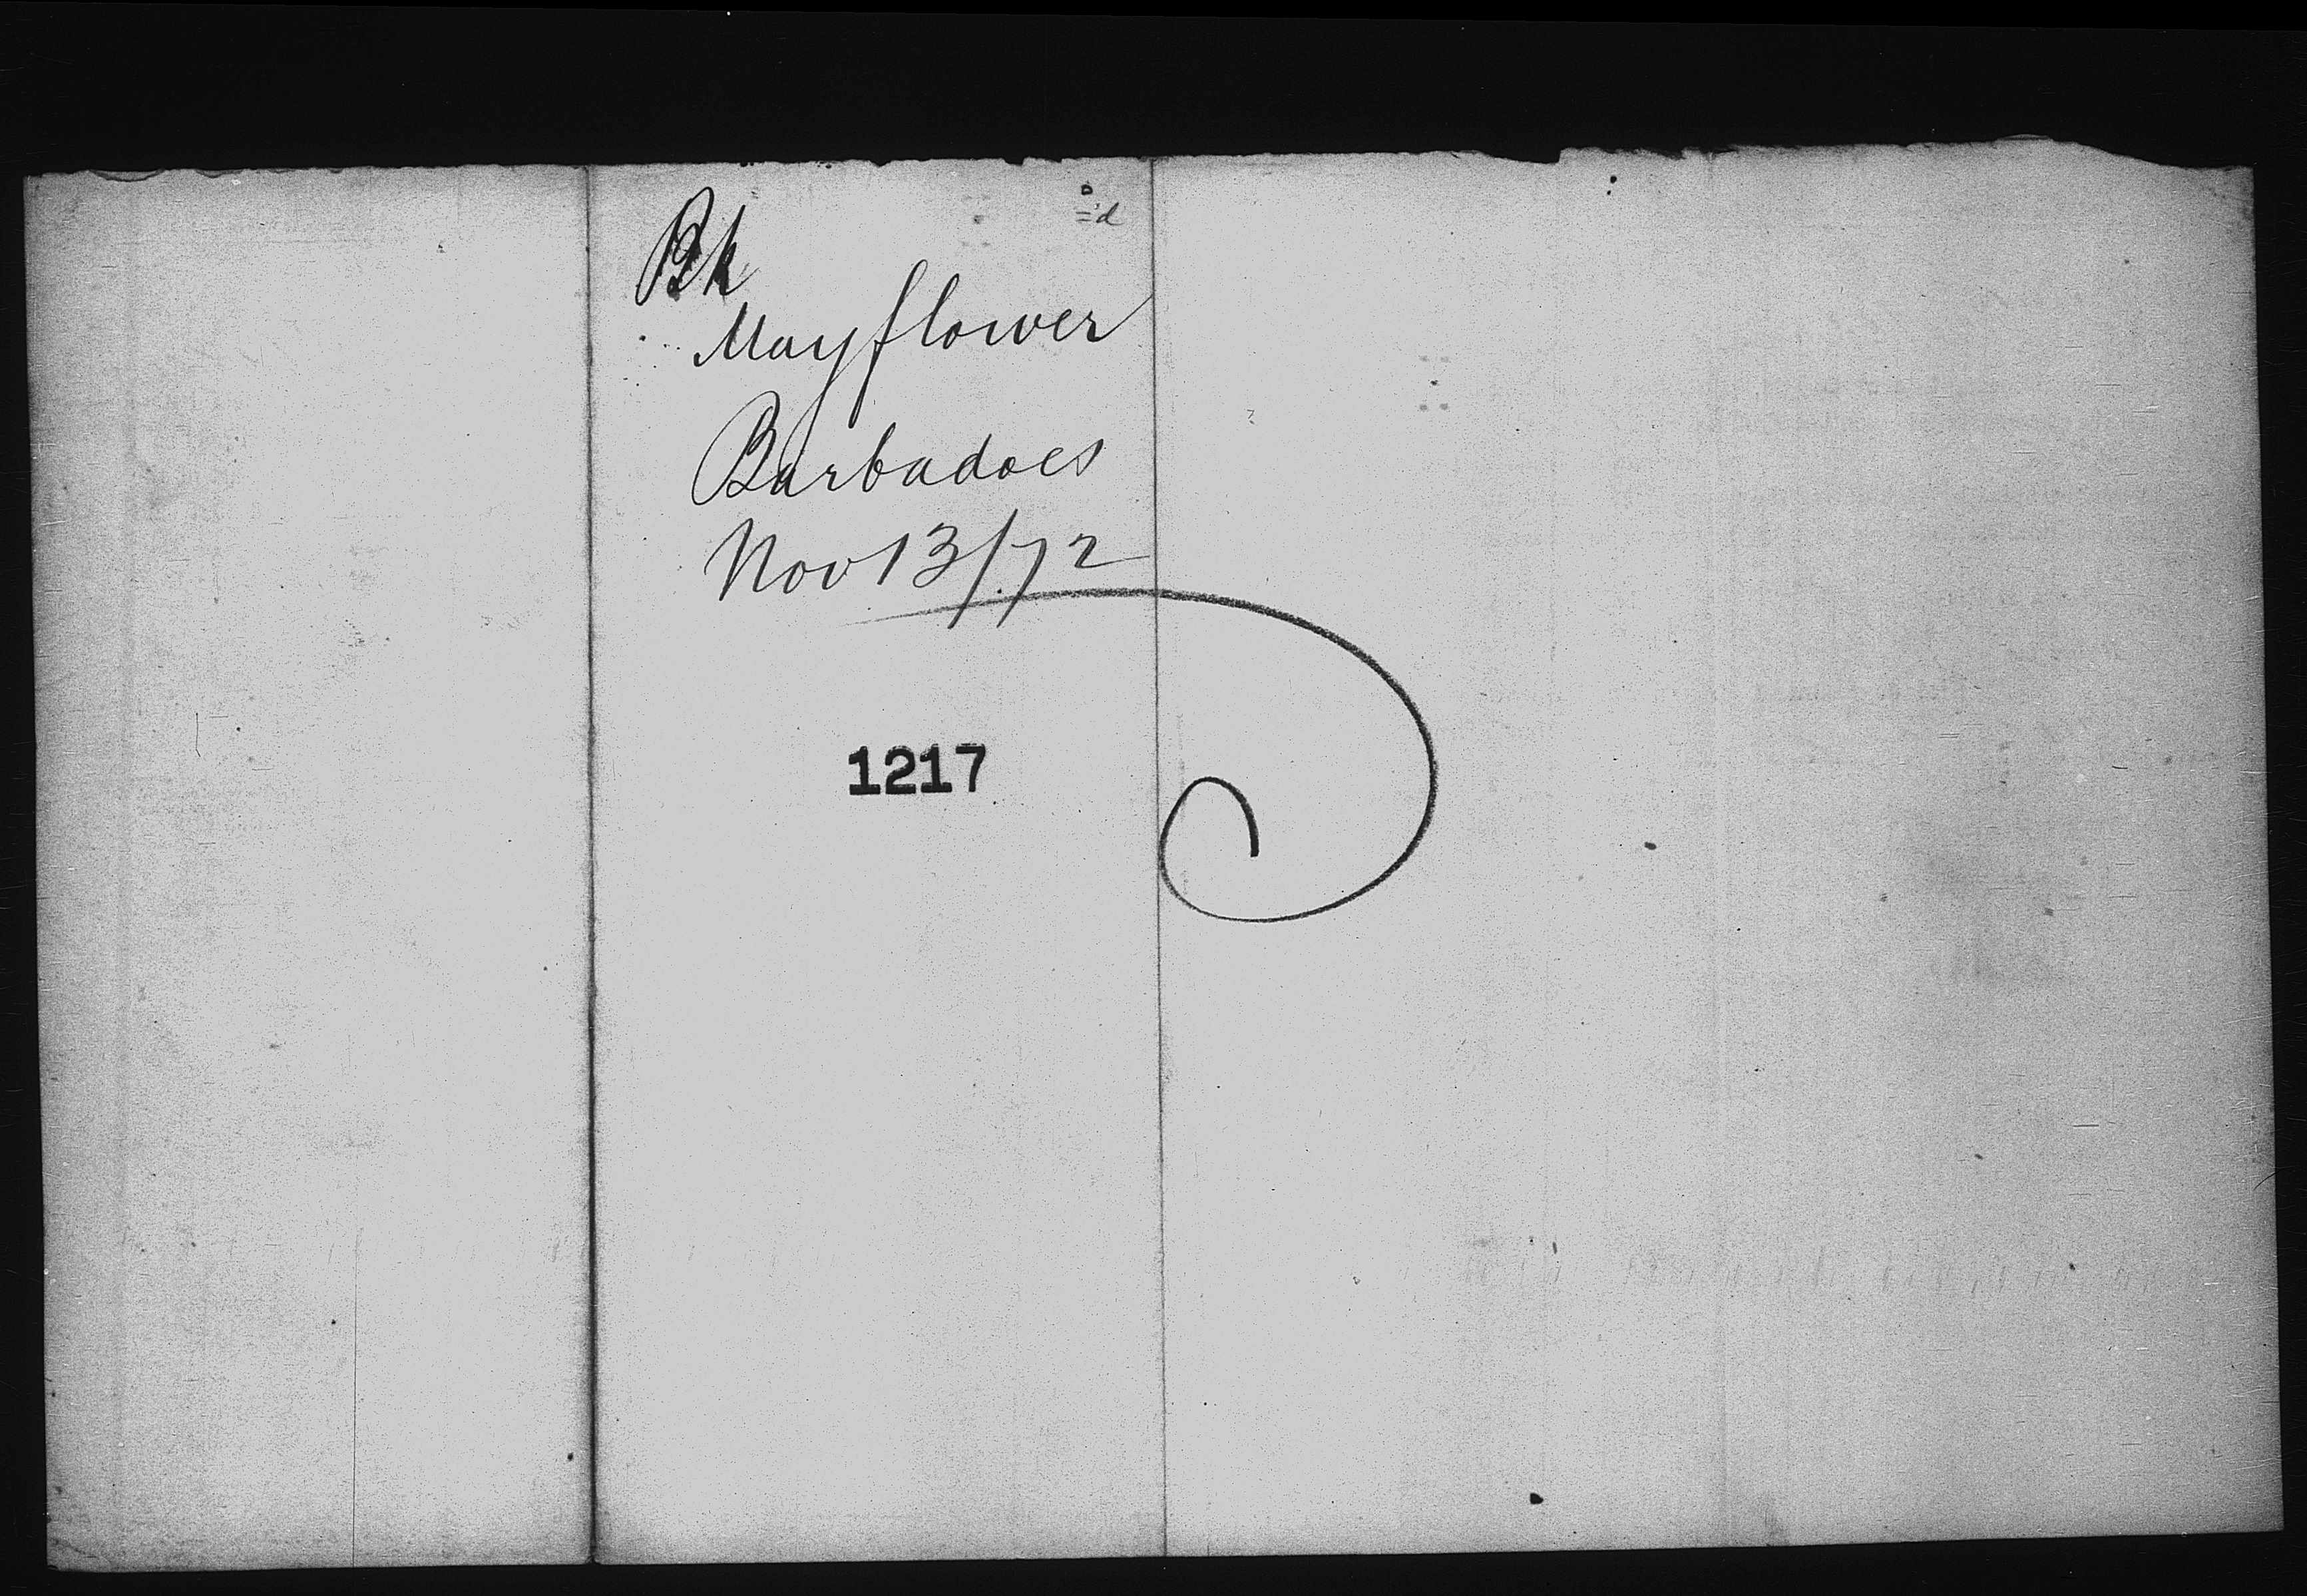 Bk
Mayflower
Barbadoes
Nov 13/72
1217